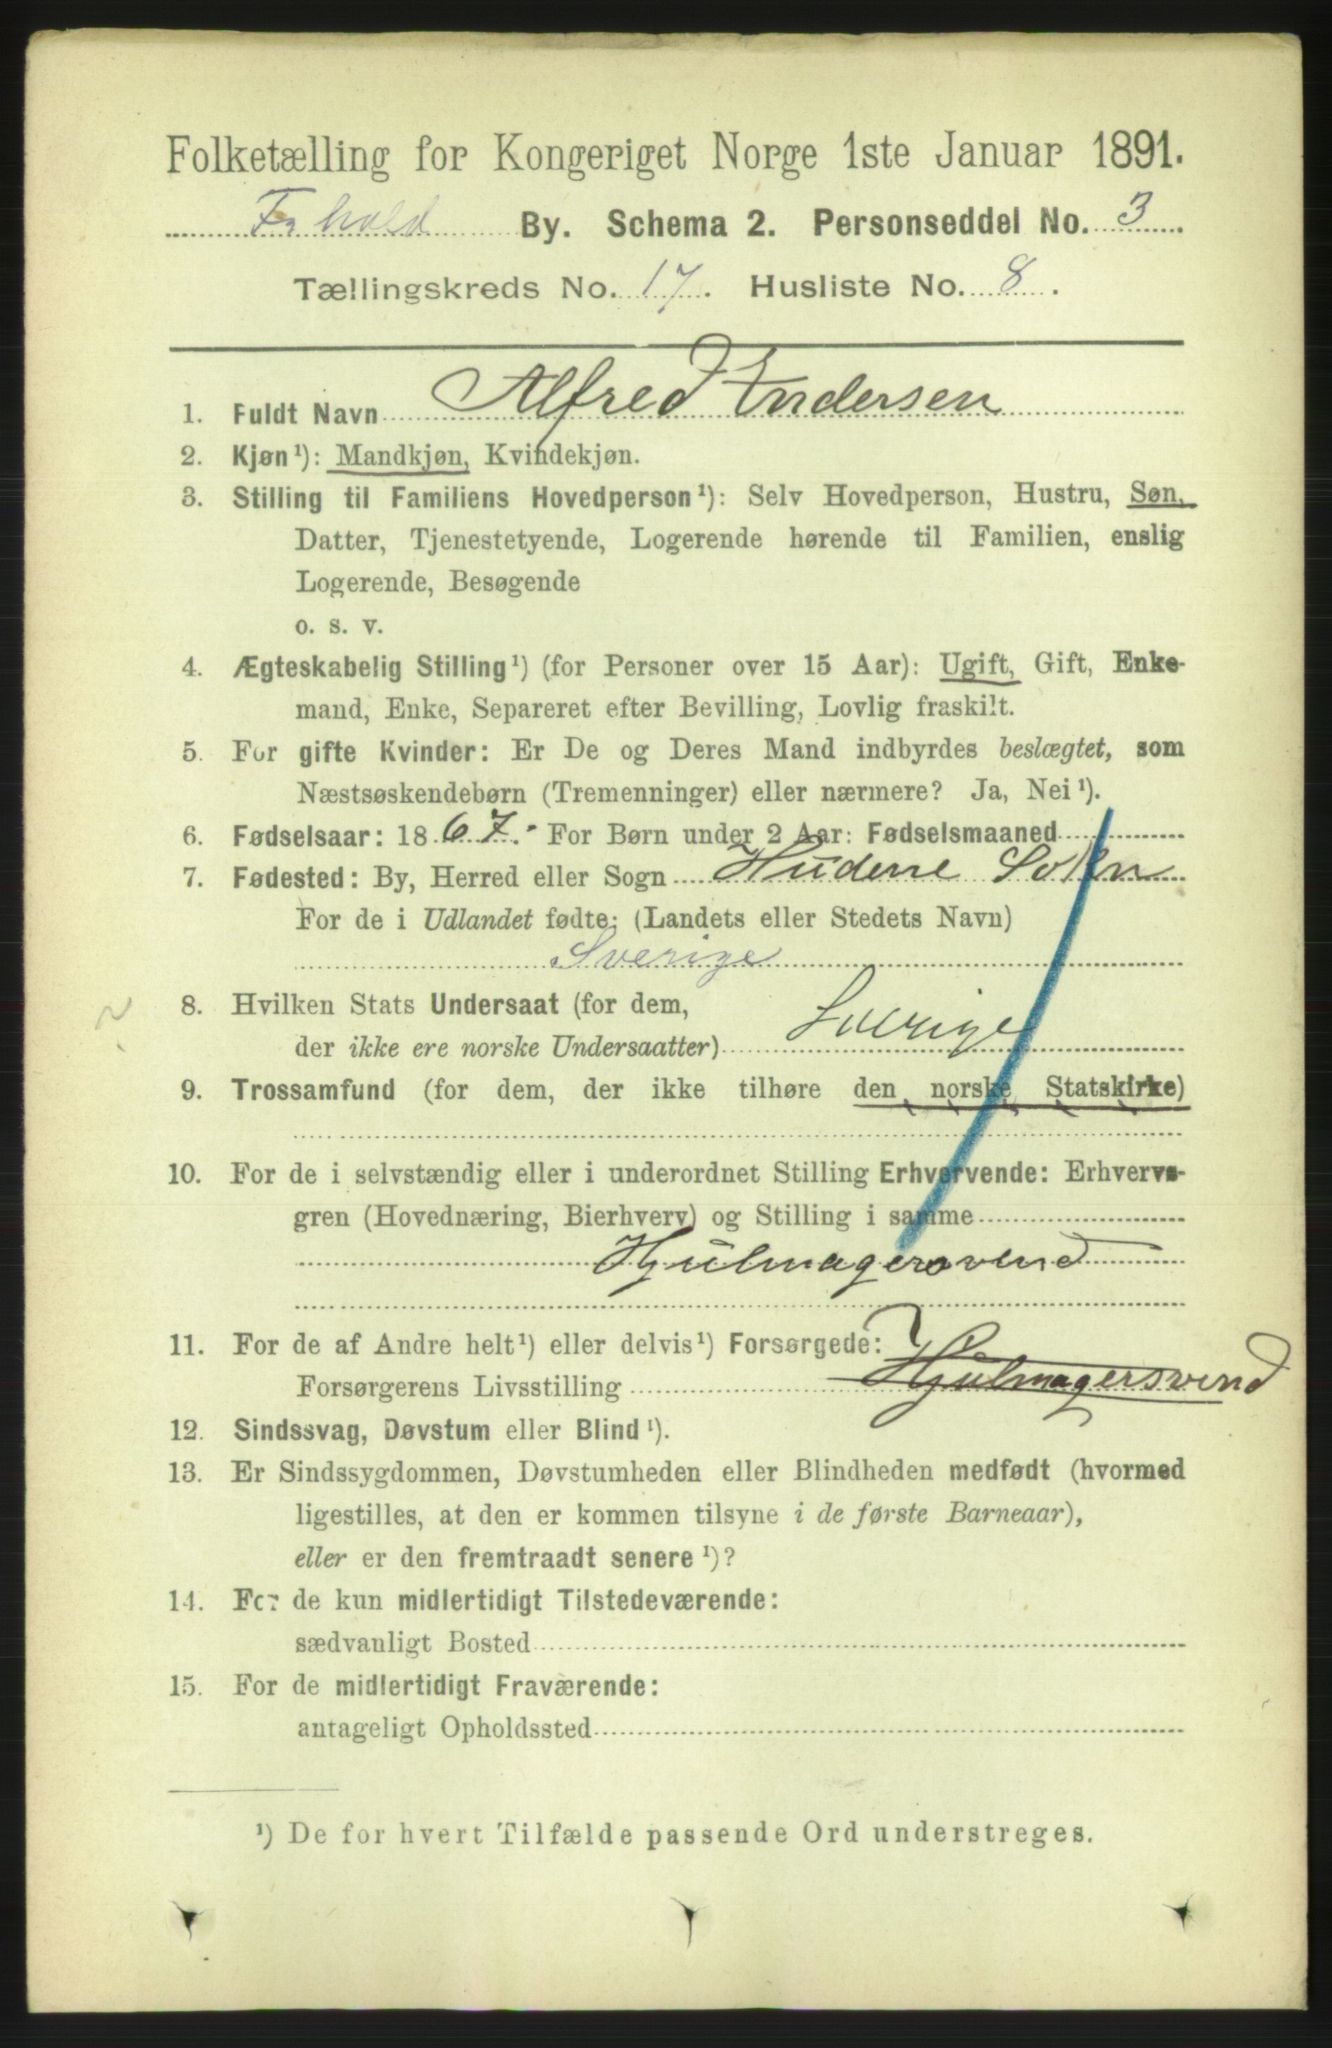 Folketælling for Kongeriget Norge 1ste Januar 1891.
Fr hald By. Schema 2. Personseddel No. 3
Tællingskreds No. 17. Husliste No. 8.
1. Fuldt Navn Alfred Andersen
2. Kjøn¹): Mandkjøn, Kvindekjøn.
3. Stilling til Familiens Hovedperson¹): Selv Hovedperson, Hustru, Søn,
Datter, Tjenestetyende, Logerende hørende til Familien, enslig
Logerende, Besøgende
o. s. v.
4. Ægteskabelig Stilling¹) (for Personer over 15 Aar): Ugift, Gift, Enke-
mand, Enke, Separeret efter Bevilling, Lovlig fraskilt.
5. For gifte Kvinder: Er De og Deres Mand indbyrdes beslægtet, som
Næstsøskendebørn (Tremenninger) eller nærmere? Ja, Nei¹).
6. Fødselsaar: 1867. For Børn under 2 Aar: Fødselsmaaned
7. Fødested: By, Herred eller Sogn Hudene Sokn
For de i Udlandet fødte: (Landets eller Stedets Navn)
Sverige
8. Hvilken Stats Undersaat (for dem,
der ikke ere norske Undersaatter) Sverige
9. Trossamfund (for dem, der ikke tilhøre den norske Statskirke)
10. For de i selvstændig eller i underordnet Stilling Erhvervende: Erhvervs-
gren (Hovednæring, Bierhverv) og Stilling i samme
Hjulmagersvend
11. For de af Andre helt¹) eller delvis¹) Forsørgede:
Forsørgerens Livsstilling Hjulmagersvend
12. Sindssvag, Døvstum eller Blind¹).
13. Er Sindssygdommen, Døvstumheden eller Blindheden medfødt (hvormed
ligestilles, at den er kommen tilsyne i de første Barneaar),
eller er den fremtraadt senere¹)?
14. For de kun midlertidigt Tilstedeværende:
sædvanligt Bosted
15. For de midlertidigt Fraværende:
antageligt Opholdssted
¹) De for hvert Tilfælde passende Ord understreges.